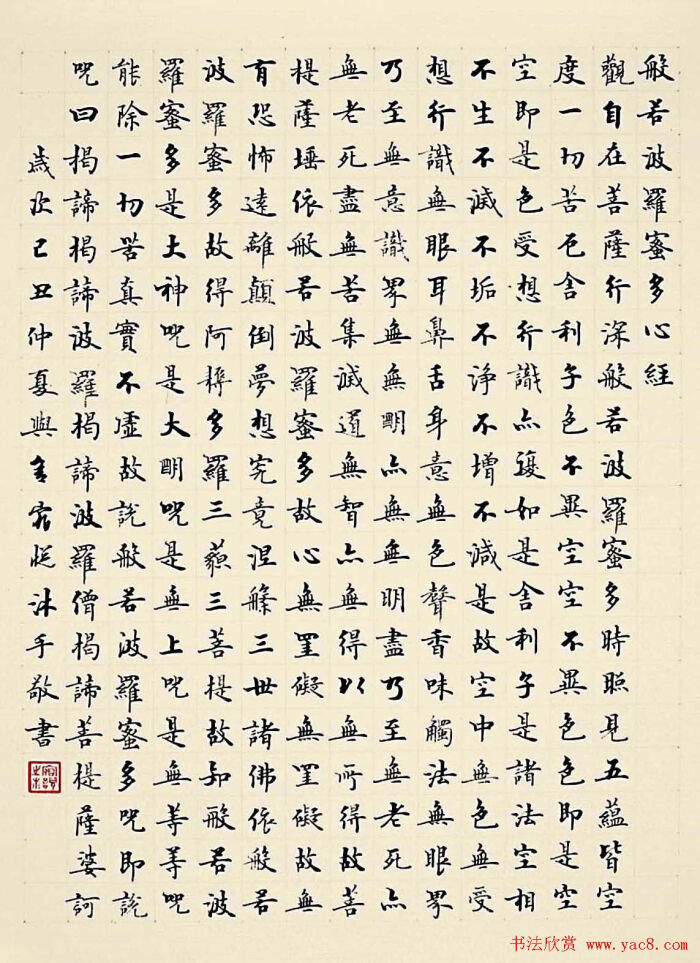 般若波羅蜜多心経
觀自在菩薩行深般若波羅蜜多時照見五蘊皆空
度一切苦厄舍利子色不異空空不異色色即是空
空即是色受想行識亦復如是舍利子是諸法空相
不生不滅不垢不淨不增不減是故空中無色無受
想行識無眼耳鼻舌身意無色聲香味觸法無眼界
乃至無意識界無無明亦無無明盡乃至無老死亦
無老死盡無苦集滅道無智亦無得以無所得故菩
提薩埵依般若波羅蜜多故心無罣礙無罣礙故無
有恐怖遠離顛倒夢想究竟涅槃三世諸佛依般若
波羅蜜多故得阿耨多羅三藐三菩提故知般若波
羅蜜多是大神咒是大明咒是無上咒是無等等咒
能除一切苦真實不虛故說般若波羅蜜多咒即說
咒曰揭諦揭諦波羅揭諦波羅僧揭諦菩提薩婆訶
歲次己丑仲夏與沐手敬書
书法欣赏 www.yac8.com